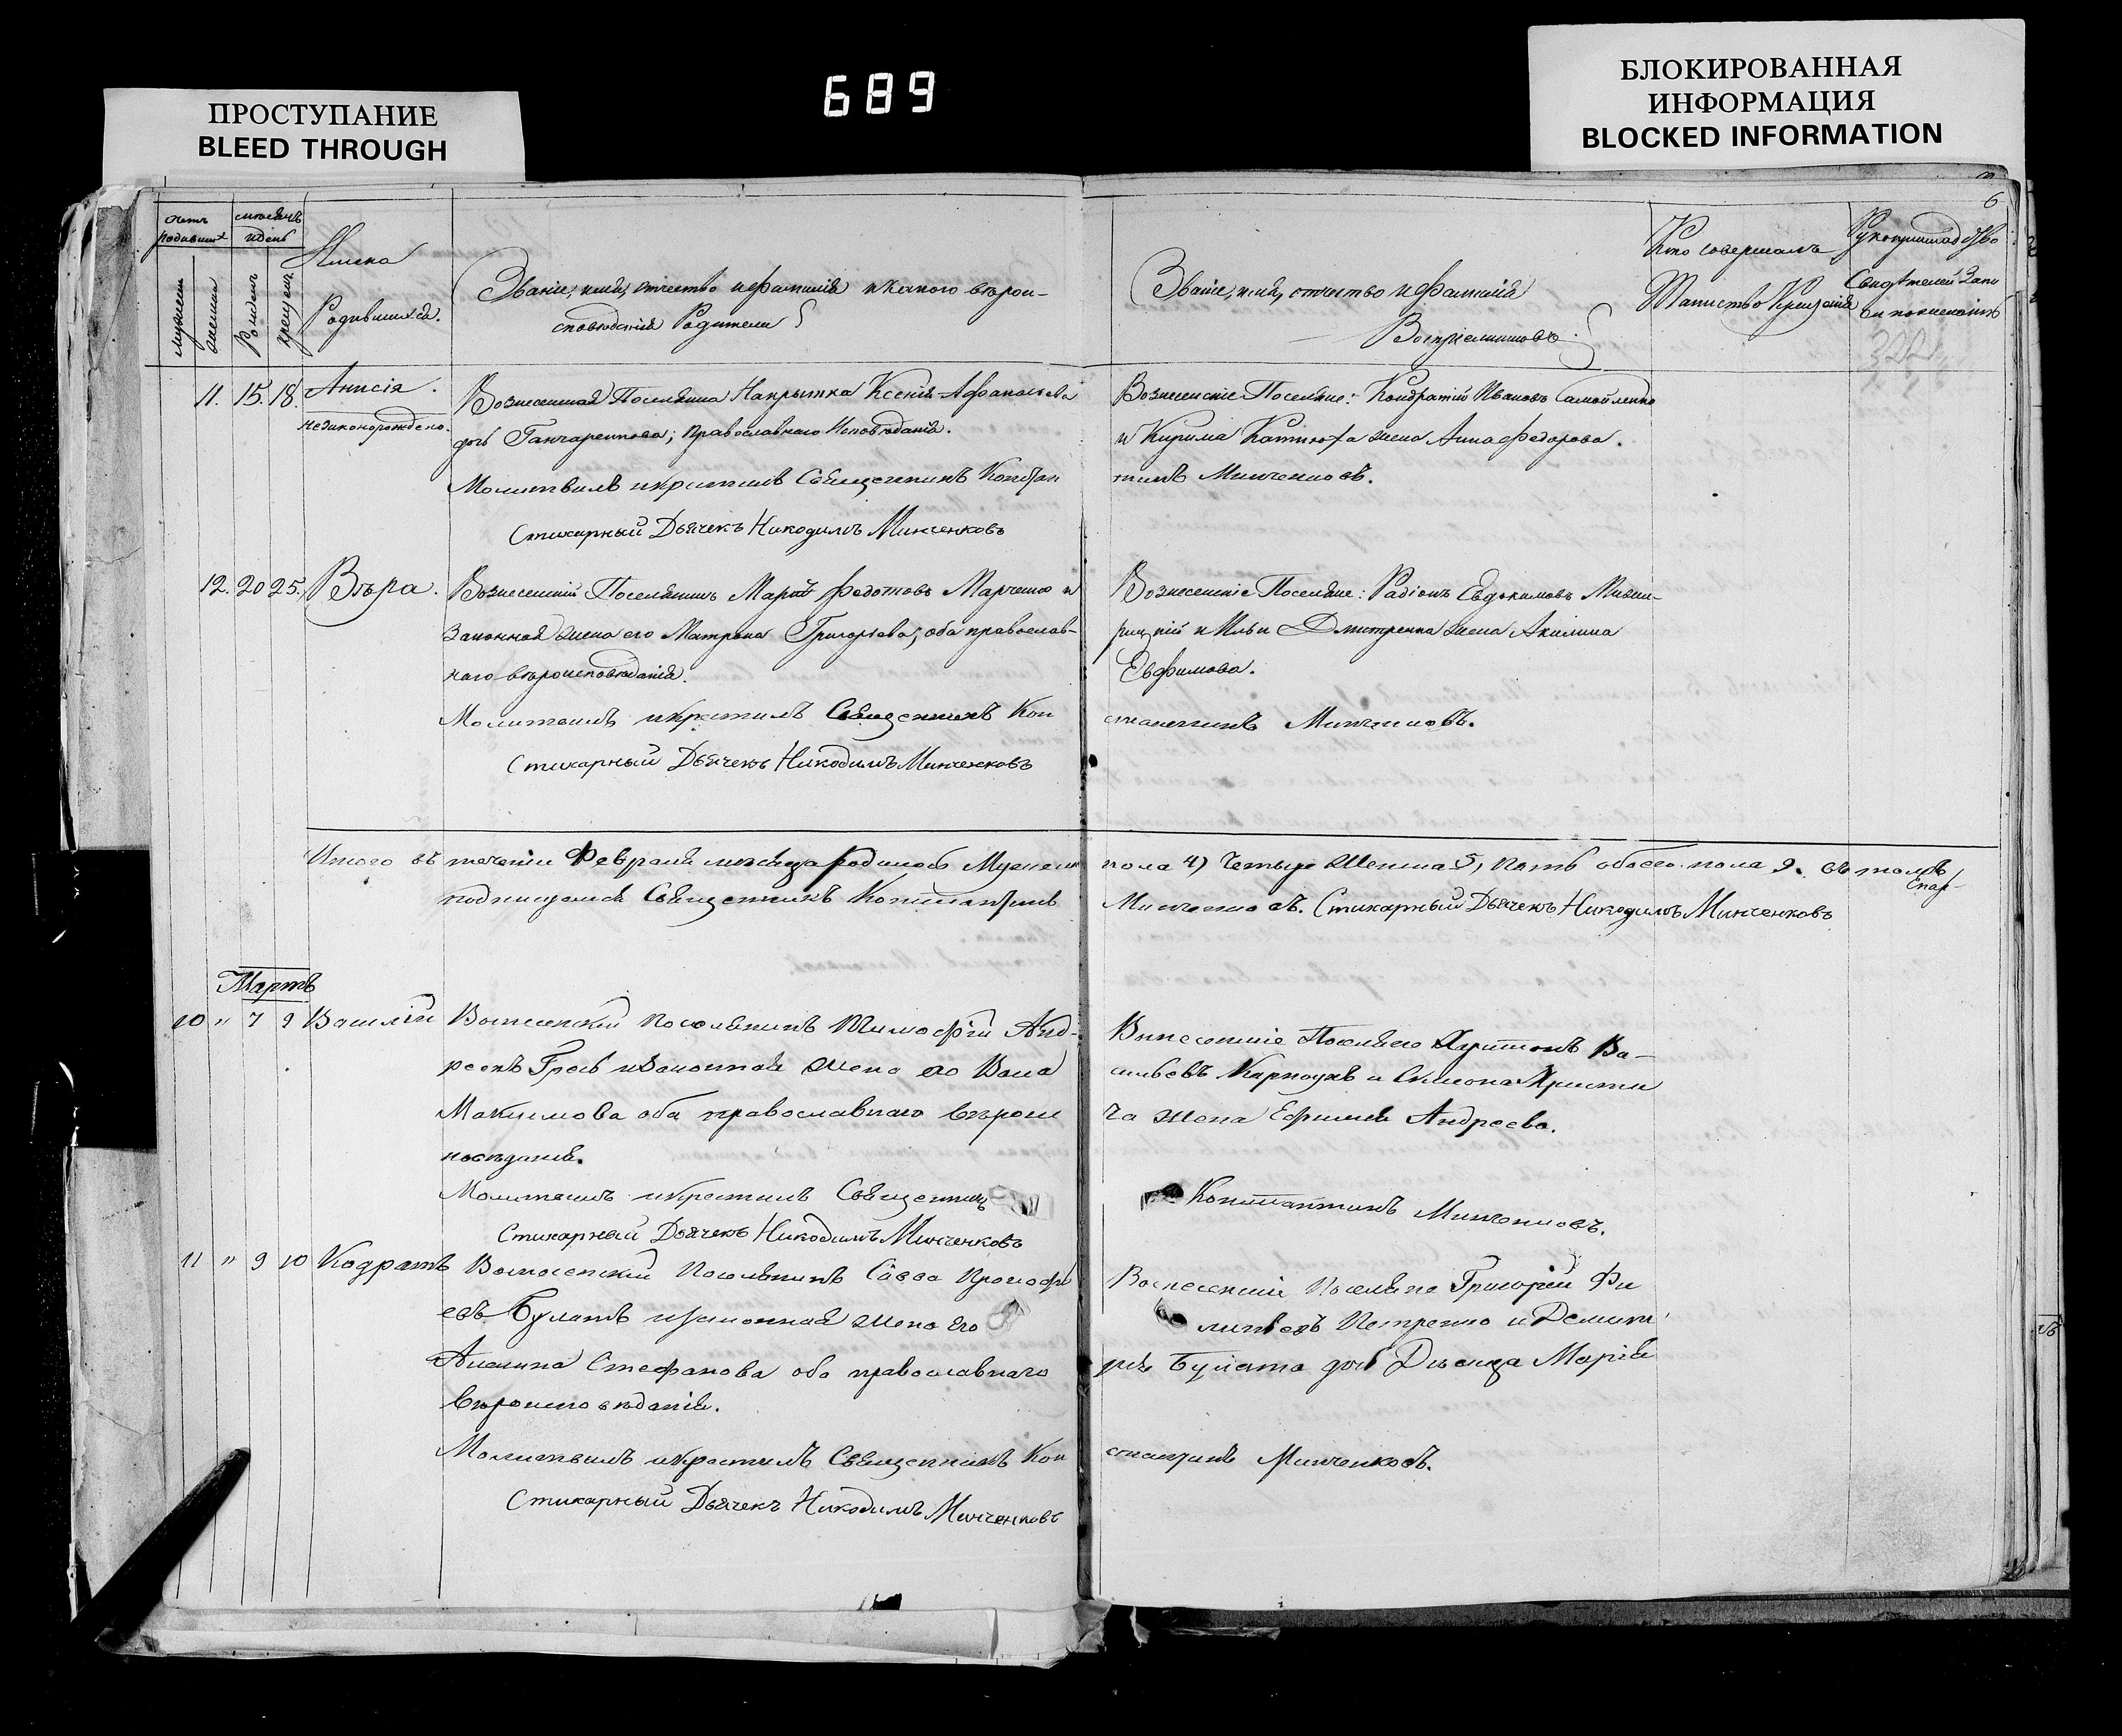 689
ПРОСТУПАНИЕ
BLEED THROUGH
БЛОКИРОВАННАЯ
ИНФОРМАЦИЯ
BLOCKED INFORMATION
6
Счетъ родивших
мѣсяцъ и день
мужеска
женска
Рожденъ
крещенъ
Имена
Родившихся.
Званіе, имя, отчество и фамилія и какого вѣрои-
сповѣданія Родители
Званіе, имя, отчество и фамилія
Воспріемниковъ
Кто совершалъ
Таинство Крещенія
Рукоприкладство
Свидѣтелей Запи
си по желанію
11. 15. 18. Анисія.
незаконорождено.
Вознесенская Поселянка Ксенія Афанасіева
дочь Ганчаренкова; Православнаго Исповѣданія.
Молитвилъ и крестилъ Священникъ Констан
Стихарный Дьячекъ Никодимъ Минченковъ
Вознесенскіе Поселяне: Кондратій Ивановъ Самойленко
и Кирила жена Анна Федорова.
тинъ Минченковъ.
12. 20 25. Вѣра.
Вознесенскій Поселянинъ Федотовъ Марченко и
Законная жена его Матрона Григорьева; оба православ-
наго вѣроисповѣданія.
Молитвилъ и крестилъ Священникъ Кон
Стихарный Дьячекъ Никодимъ Минченковъ
Вознесенскіе Поселяне: Радіонъ Евдокимовъ
и Ильи Дмитренка жена Акилина
Евфимова.
стантинъ Минченковъ.
Итого въ теченіи Февраля мѣсяца родилось Мужеска
пола 4, четыре Женска 5, пять обоего пола 9. въ томъ
подписуемся Священникъ Константинъ
Минченковъ. Стихарный Дьячекъ Никодимъ Минченковъ
Мартъ
10 " 7 9 Василій
Вознесенскій Поселянинъ Тимофѣй Анд-
реевъ и Законная жена его
Максимова оба православнаго вѣрои
повѣданія.
Молитвилъ и крестилъ Священник
Стихарный Дьячекъ Никодимъ Минченковъ
Вознесенскіе Поселяне Харитонъ Ва-
сильевъ и Симона
жена Ефимія Андреева.
Константинъ Минченковъ.
11 " 9 10 Кодратъ
Вознесенскій Поселянинъ Савва Прокофі
евъ Булатъ и законная жена его
Стефанова оба православнаго
вѣроисповѣданія.
Молитвилъ и крестилъ Священникъ Кон
Стихарный Дьячекъ Никодимъ Минченковъ
Вознесенскіе Поселяне Григорій Фи
липовъ Петренко и Демит
рія Булата дочь Дѣвица Марія
стантинъ Минченковъ.